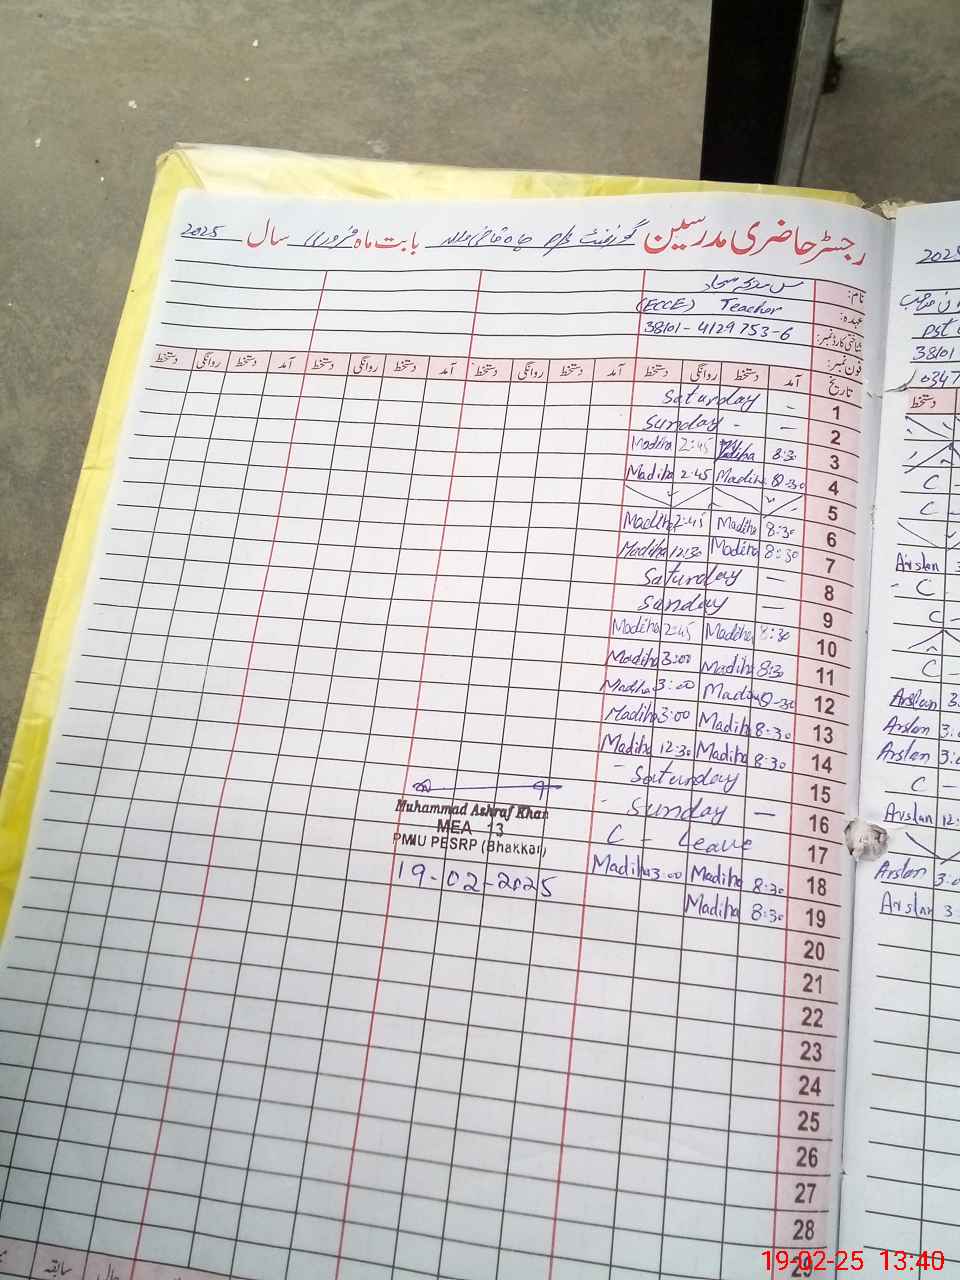 رجسٹر حاضری مدرسین گورنمنٹ بابت ماہ فروری سال 2025
نام:
عہدہ: (ECCE) Teacher
شناختی کارڈ نمبر: 38101-4129753-6
فون نمبر:
تاریخ آمد دستخط روانگی دستخط آمد دستخط روانگی دستخط آمد دستخط روانگی دستخط
Saturday - 1
Sunday - - 2
Madiha 2:45 Madiha 8:30 3
Madiha 2:45 Madiha 8:30 4
5
Madiha 2:45 Madiha 8:30 6
Madiha 12:30 Madiha 8:30 7
Saturday — 8
Sunday — 9
Madiha 2:45 Madiha 8:30 10
Madiha 3:00 Madiha 8:30 11
Madiha 3:00 Madiha 8:30 12
Madiha 3:00 Madiha 8:30 13
Madiha 12:30 Madiha 8:30 14
Saturday 15
Sunday — 16
C - Leave 17
Madiha 3:00 Madiha 8:30 18
Madiha 8:30 19
20
21
22
23
24
25
26
27
28
29
Muhammad Ashraf Khan
MEA 13
PMIU PESRP (Bhakkar)
19-02-2025
سابقہ حال
2025
pst
38101
0347
دستخط
C -
C -
Arslan 3
C
C -
C -
Arslan 3
Arslan 3:
Arslan 3:
C -
Arslan 12
Arslan 3:
Arslan 3
19-02-25 13:40